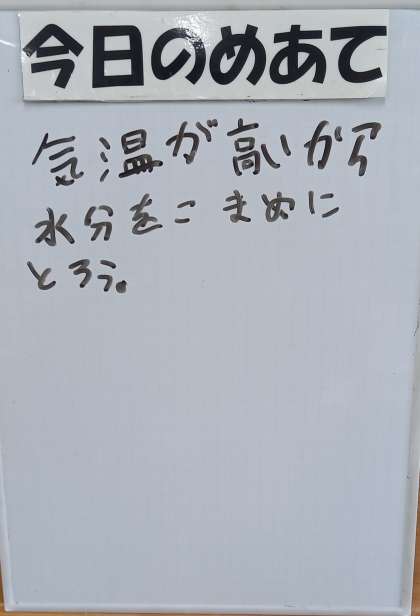 今日のめあて
気温が高いから
水分をこまめに
とろう。